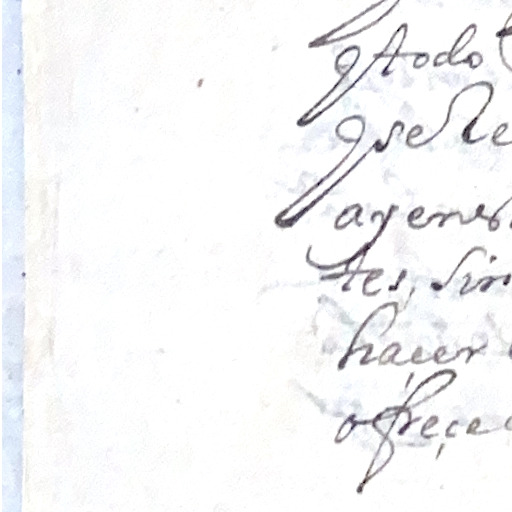 q todo
q se le
ayen
tes, sin
haçer
ofreçe